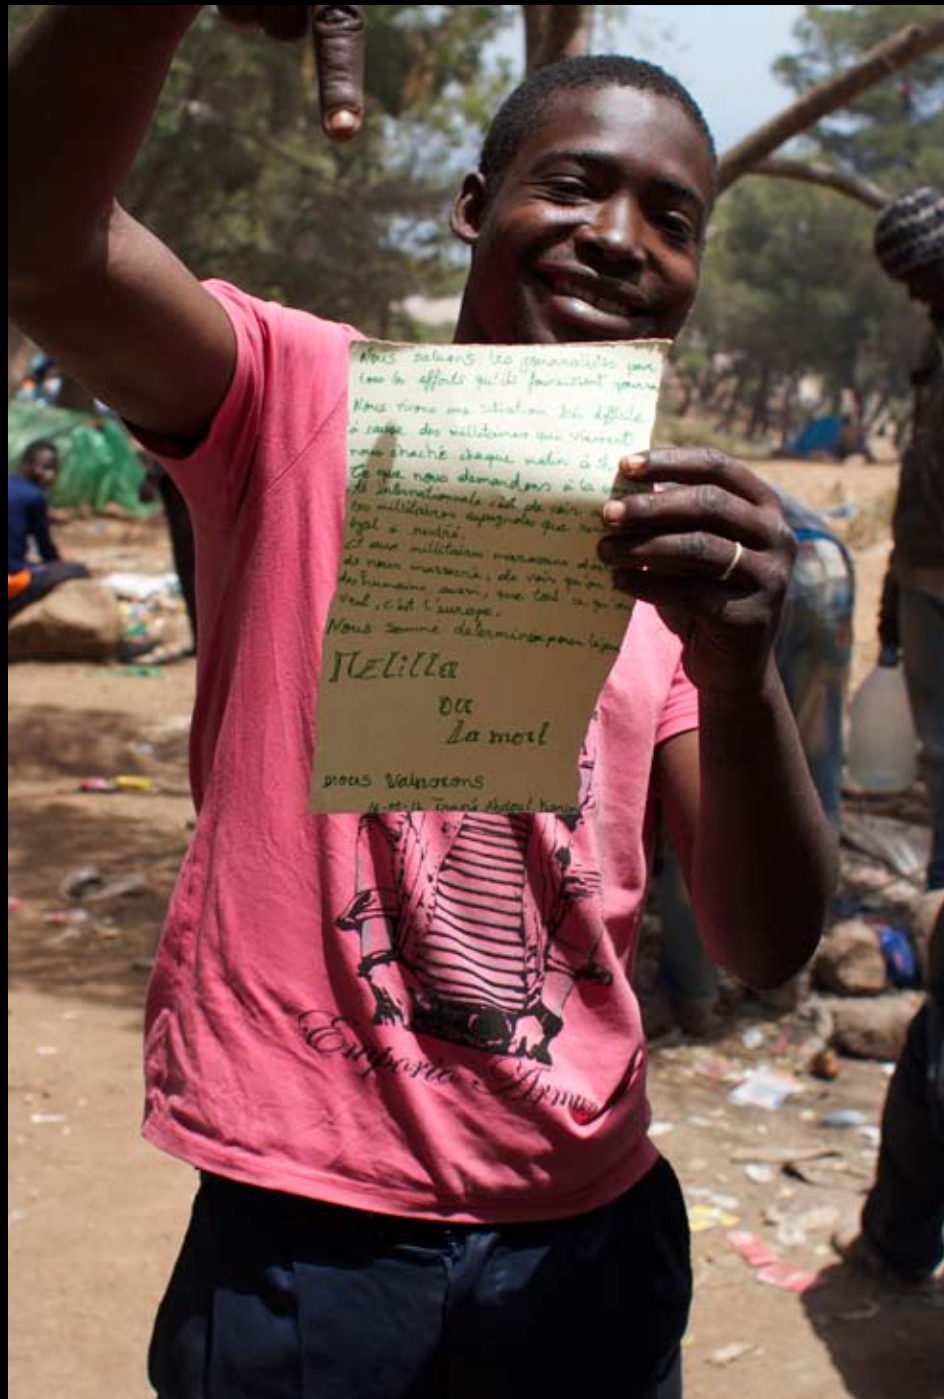 Nous saluons les journalistes pour
tous les efforts qu'ils fournissent pour
Nous vivons une situation très difficile
à cause des millitaires qui viennent
nous chaché chaque matin à 5h
Ce que nous demandons à la
Internationale c'est de voir
millitaires espagnoles que
égal à
Et aux millitaires marocains
de nous massacré, de voir qu'on
des humains aussi, que tout ce qu'on
veut, c'est l'europe.
Nous somme determiner pour
Melilla
ou
La mort
nous Valnorons
Traoré Abdoul Karim
Emporio Armani